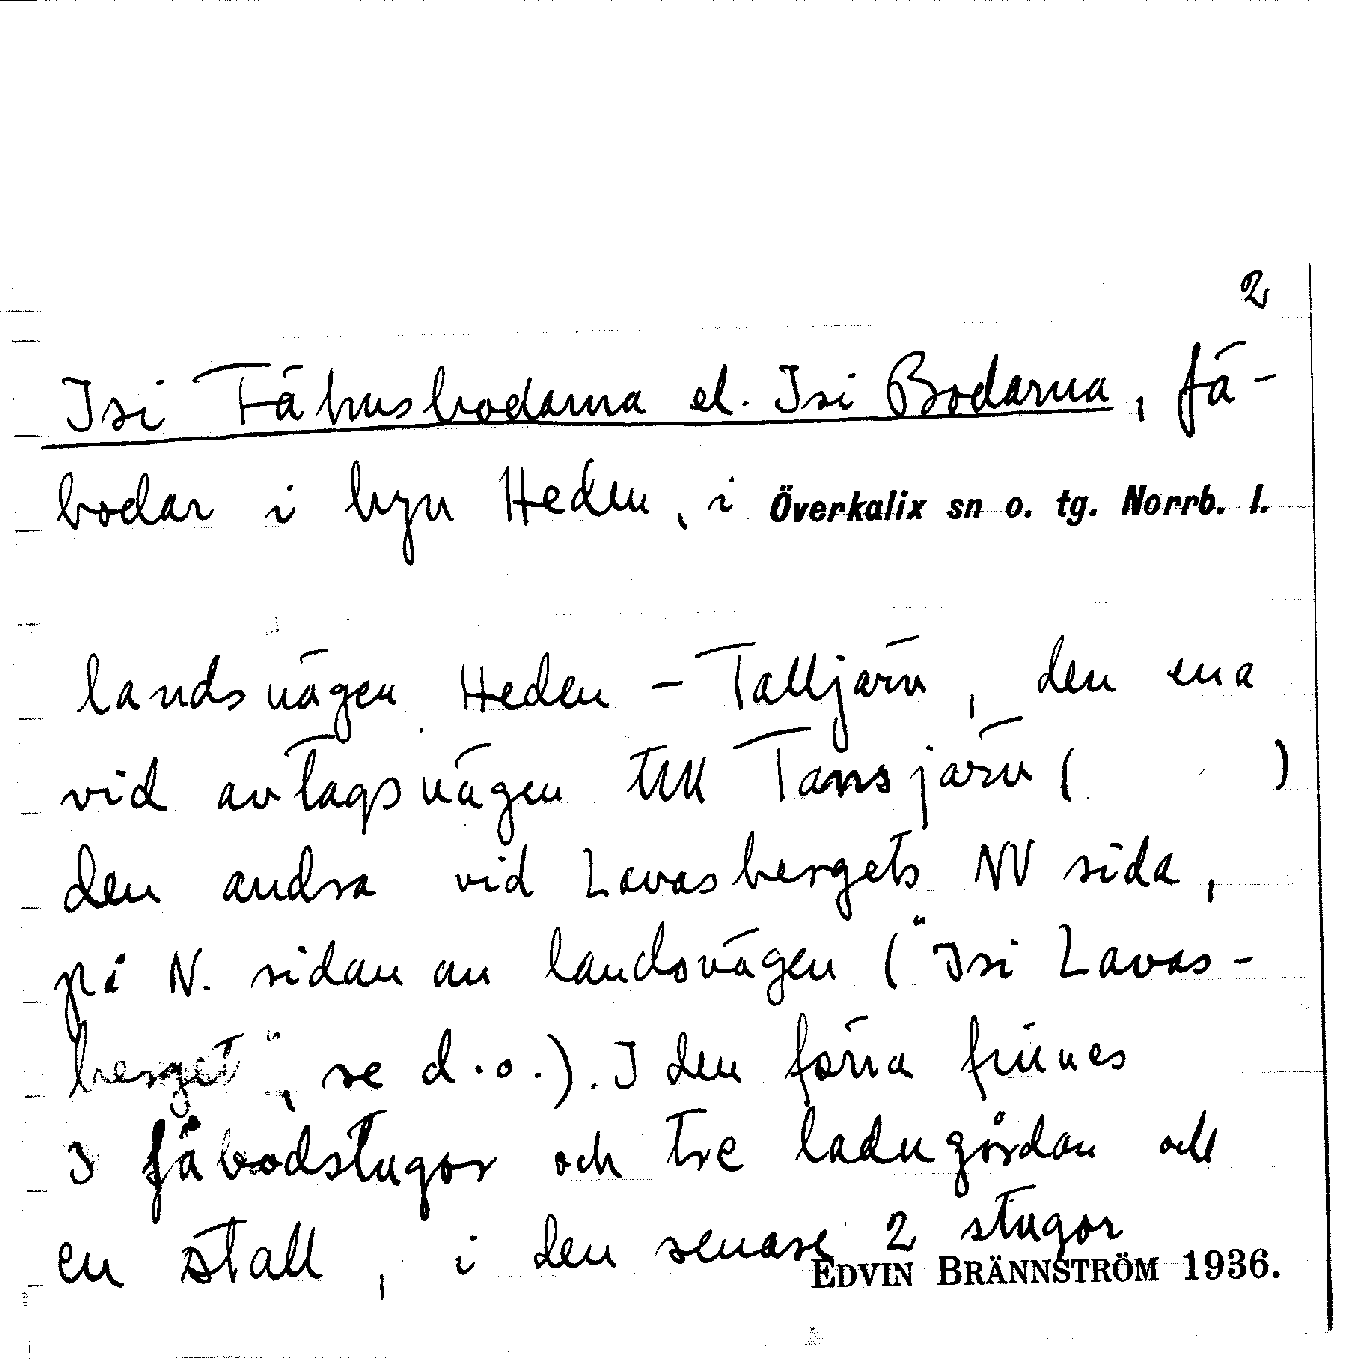 2
Isi Fähusbodarna el. Isi Bodarna, fä-
bodar i byn Heden, i Överkalix sn o. tg. Norrb. l.
landsvägen Heden - Talljärv, den ena
vid avtagsvägen till Tansjärv (          )
den andra vid Lavasbergets NV sida,
på N. sidan av landsvägen ("Isi Lavas-
berget", se d.o.). I den förra finnes
3 fäbodstugor och tre ladugårdar och
en stall, i den senare 2 stugor
EDVIN BRÄNNSTRÖM 1936.